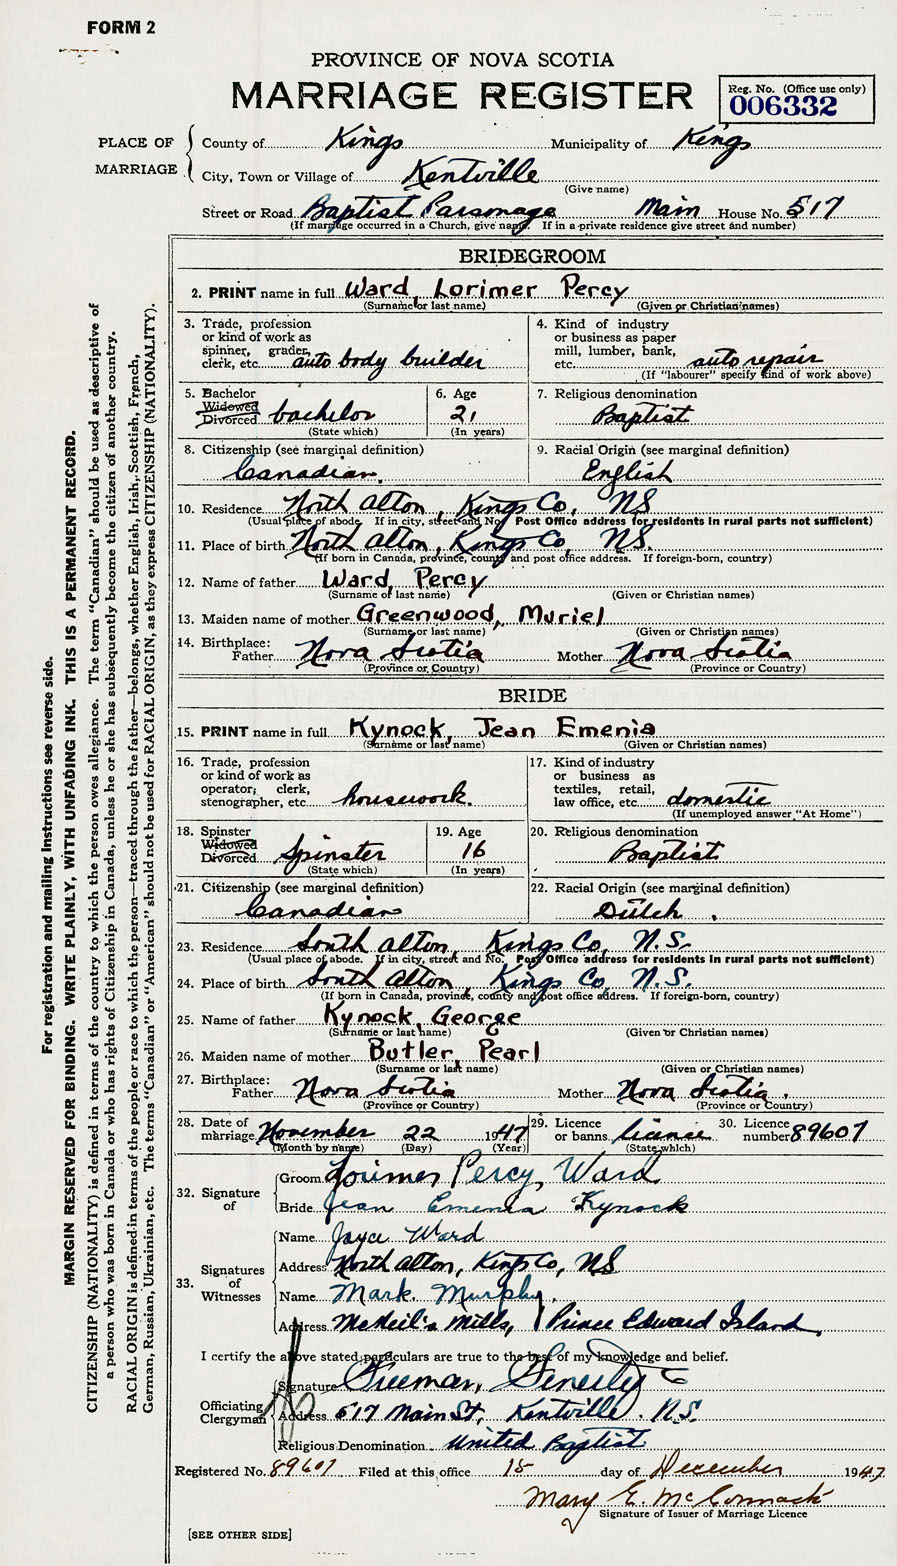 FORM 2
PROVINCE OF NOVA SCOTIA
MARRIAGE REGISTER
Reg. No. (Office use only)
006332
PLACE OF MARRIAGE
County of Kings Municipality of Kings
City, Town or Village of Kentville
(Give name)
Street or Road Baptist Parsonage Main House No. 517
(If marriage occurred in a Church, give name. If in a private residence give street and number)
BRIDEGROOM
2. PRINT name in full Ward, Lorimer Percy
(Surname or last name) (Given or Christian names)
3. Trade, profession or kind of work as spinner, grader, clerk, etc. auto body builder
4. Kind of industry or business as paper mill, lumber, bank, etc. auto repair
(If "labourer" specify kind of work above)
5. Bachelor Widowed Divorced bachelor
(State which)
6. Age 21
(In years)
7. Religious denomination
Baptist
8. Citizenship (see marginal definition)
Canadian.
9. Racial Origin (see marginal definition)
English
10. Residence North Alton, Kings Co, NS
(Usual place of abode. If in city, street and No. Post Office address for residents in rural parts not sufficient)
11. Place of birth North Alton, Kings Co, NS.
(If born in Canada, province, county and post office address. If foreign-born, country)
12. Name of father Ward, Percy
(Surname or last name) (Given or Christian names)
13. Maiden name of mother Greenwood, Muriel
(Surname or last name) (Given or Christian names)
14. Birthplace: Father Nova Scotia Mother Nova Scotia
(Province or Country) (Province or Country)
BRIDE
15. PRINT name in full Kynock, Jean Emenia
(Surname or last name) (Given or Christian names)
16. Trade, profession or kind of work as operator, clerk, stenographer, etc. housework.
17. Kind of industry or business as textiles, retail, law office, etc. domestic
(If unemployed answer "At Home")
18. Spinster Widowed Divorced Spinster
(State which)
19. Age 16
(In years)
20. Religious denomination
Baptist
21. Citizenship (see marginal definition)
Canadian
22. Racial Origin (see marginal definition)
Dutch.
23. Residence South Alton, Kings Co, N.S.
(Usual place of abode. If in city, street and No. Post Office address for residents in rural parts not sufficient)
24. Place of birth South Alton, Kings Co, N.S.
(If born in Canada, province, county and post office address. If foreign-born, country)
25. Name of father Kynock, George
(Surname or last name) (Given or Christian names)
26. Maiden name of mother Butler, Pearl
(Surname or last name) (Given or Christian names)
27. Birthplace: Father Nova Scotia Mother Nova Scotia.
(Province or Country) (Province or Country)
28. Date of marriage November 22 1947
(Month by name) (Day) (Year)
29. Licence or banns license
(State which)
30. Licence number 89607
32. Signature of
Groom Lorimer Percy Ward
Bride Jean Emenia Kynock
33. Signatures of Witnesses
Name Jayce Ward
Address North Alton, Kings Co, NS
Name Mark Murphy.
Address McNeil's Mills, Prince Edward Island.
I certify the above stated particulars are true to the best of my knowledge and belief.
Officiating Clergyman
Signature Freeman
Address 517 Main St, Kentville. N.S.
Religious Denomination United Baptist
Registered No. 89607 Filed at this office 15 day of December 1947
Mary E. McCormack
Signature of Issuer of Marriage Licence
[SEE OTHER SIDE]
For registration and mailing instructions see reverse side.
MARGIN RESERVED FOR BINDING. WRITE PLAINLY, WITH UNFADING INK. THIS IS A PERMANENT RECORD.
CITIZENSHIP (NATIONALITY) is defined in terms of the country to which the person owes allegiance. The term "Canadian" should be used as descriptive of
a person who was born in Canada or who has rights of Citizenship in Canada, unless he or she has subsequently become the citizen of another country.
RACIAL ORIGIN is defined in terms of the people or race to which the person—traced through the father—belongs, whether English, Irish, Scottish, French,
German, Russian, Ukrainian, etc. The terms "Canadian" or "American" should not be used for RACIAL ORIGIN, as they express CITIZENSHIP (NATIONALITY).